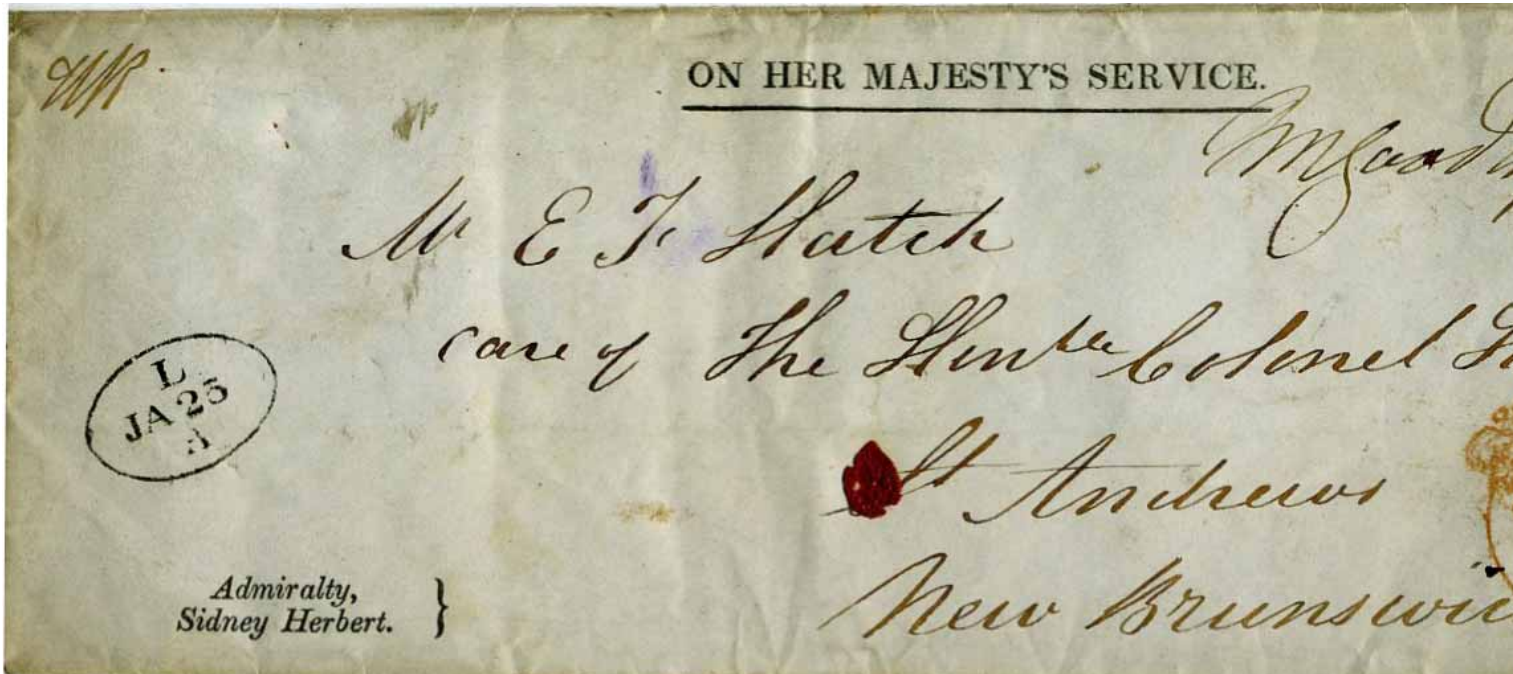 ON HER MAJESTY'S SERVICE.
Mr E F Hatch
care of The Honble Colonel
St Andrews
New Brunswic
L
JA 25
A
Admiralty,
Sidney Herbert.